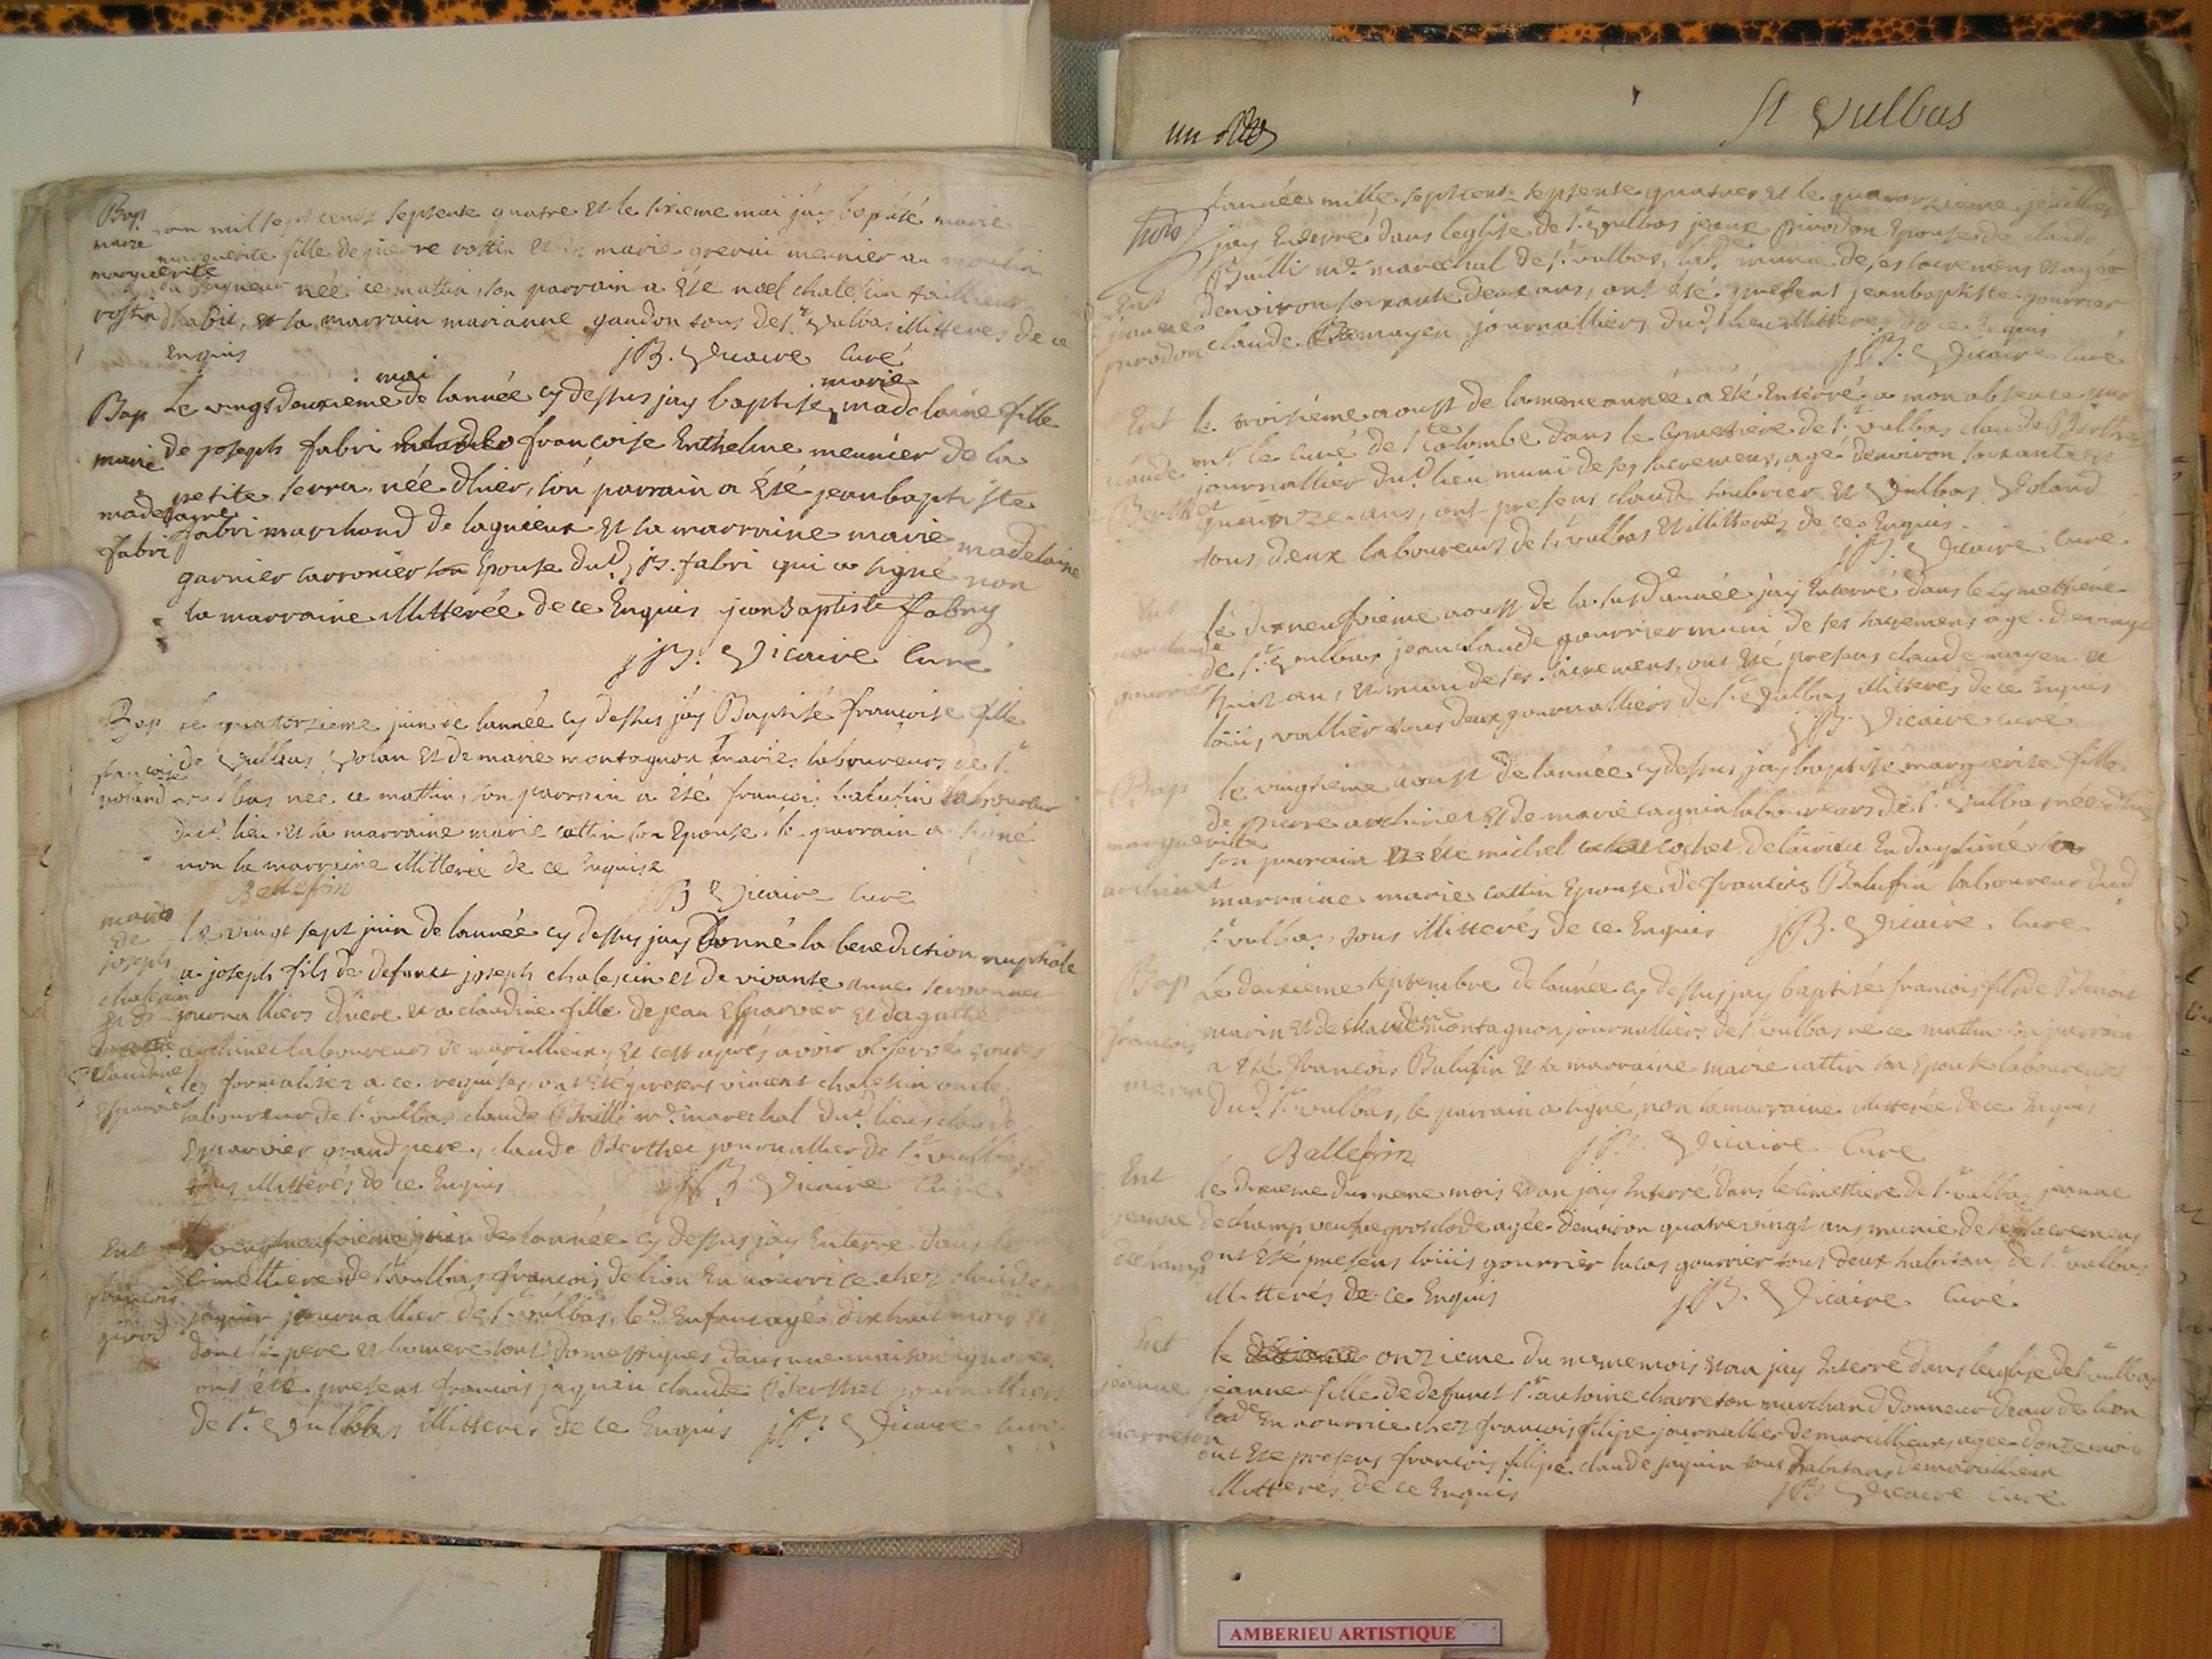 St Vulbas
Bap
marie
marguerite
rostin
l'an mil sept cents septente quatre et le sixieme mai jay baptisé marie
marguerite fille de pierre rostin et de marie grevai meunier au moulin
du seigneur née ce mattin, son parrain a été noel chalessin taillieur
dhabit, et la marrain marianne gaudon tous de st vulbas illitteres de ce
Enquis
jB. Vicaire Curé
Bap
marie
madelaine
fabri
Le vingt deuxieme mai de lannée cy dessus jay baptisé marie madelaine fille
de joseph fabri françoise Entheline meunier de la
petite serra, née dhier, son parrain a été jean baptiste
fabri marchand de lagnieux et la marraine marie madelaine
garnier carronier Epouse dud. jB. fabri qui a signé non
la marraine illitterée de ce Enquis jean Baptiste fabry
jB. Vicaire Curé
Bap
francoise
voland
le quatorzieme juin de lannée cy dessus jay Baptisé francoise fille
de Vulbas Volan et de marie montagnon mariés laboureurs de st
vulbas née ce mattin, son parrain a été francois balufin laboureur
dud. lieu et la marraine marie cattin son Epouse, le parrain a signé
non la marraine illitterée de ce Enquise
Ballefin
jB Vicaire Curé
joseph
chalessin
claudine
Esparvier
le vingt sept juin de lannée cy dessus jay donné la benediction nuptiale
a joseph fils de defunct joseph chalessin et de vivante anne
journalliers et a claudine fille de jean Esparvier et dagathe
archinet laboureurs de marillieux, et cest aprés avoir observé toutes
les formalitez a ce requises, ont été presens vincent chalessin oncle
laboureur de st vulbas claude Builli md. marechal dud. lieu claude
Esparvier grand pere, claude Berthet journallier de st vulbas
tous illitterés de ce Enquis jB. Vicaire Curé
Ent
francois
girod
le vingt neufvieme juin de lannée cy dessus jay Enterré dans le
cimettiere de st vulbas francois de lion En nourrice chez claude
jaquin journallier de st vulbas, led. Enfant agé dixhuit mois et
dont le pere et la mere sont domestiques dans une maison ignorée
ont été present francois jaquin claude Berthet journalliers
de st Vulbas illitteres de ce Enquis jB. Vicaire Curé
lannée mille sept cents septente quatres et le quatorzieme jeuillet
jay Enterré dans leglise de st vulbas jeanne pirodon Epouse de claude
Builli md. marechal de st vulbas, lad. munie de ses sacremens et agée
denviron soixante deux ans, ont été present jean baptiste gourrier
claude mayen journalliers dud. lieu illitteres de ce Enquis
jB. Vicaire Curé
Ent
jeanne
pirodon
Ent
claude
Berthet
le troisieme aoust de la meme année a été Enterré a mon absence par
mr. le Curé de ste Colombe dans le cymetiere de st vulbas claude Berthet
journallier dud. lieu muni de ses sacremens, agé denviron soixante et
quinze ans, ont presens claude soubrier et Vulbas Voland
tous deux laboureurs de st vulbas et illitterés de ce Enquis.
jB. Vicaire Curé
Ent
jean claude
gourrier
le dixneufvieme aoust de la susde année jay Enterré dans le cymettiere
de st Vulbas jean claude gourrier muni de ses sacremens agé de vingt
huit ans et muni de ses sacremens, ont été presens claude mayen et
loüis vallier tous deux journalliers de st Vulbas illitterés de ce Enquis
jB. Vicaire Curé
Bap
marguerite
archinet
le vingtieme aoust de lannée cy dessus jay baptisé marguerite fille
de pierre archinet et de marie cagnin laboureurs de st Vulbas née dhier
son parrain a été michel cochet En dauphiné sa
marraine marie cattin Epouse de francois Balufin laboureur dud
st vulbas, tous illitterés de ce Enquis jB. Vicaire Curé
Bap
francois
marin
Le deuxieme septembre de lannée cy dessus jay baptisé francois fils de Benoit
marin et de claudine montagnon journalliers de st vulbas né ce mattin son parrain
a été francois Balufin et la marraine marie cattin son Epouse laboureurs
dud. st vulbas, le parrain a signé, non la marraine illitterée de ce Enquis
Ballefin jB. Vicaire Curé
Ent
jeanne
dechamp
le dixieme du meme mois et an jay Enterré dans le cimettiere de st vulbas jeanne
dechamp veufve grosclode agée denviron quatre vingt ans munie de ses sacremens
ont été presens loüis gourrier lucas gourrier tous deux habitans de st vulbas
illitterés de ce Enquis jB. Vicaire Curé
Ent
jeanne
charreton
le onzieme du meme mois et an jay Enterré dans leglise de st vulbas
jeanne fille de defunct sr. antoine charreton marchand donneur deau de lion
lade En nourrice chez francois filipe journallier de marillieux agée donze mois
ont été presens francois filipe claude jaquin tous habitans de marillieux
illitterés de ce Enquis jB Vicaire Curé
AMBERIEU ARTISTIQUE